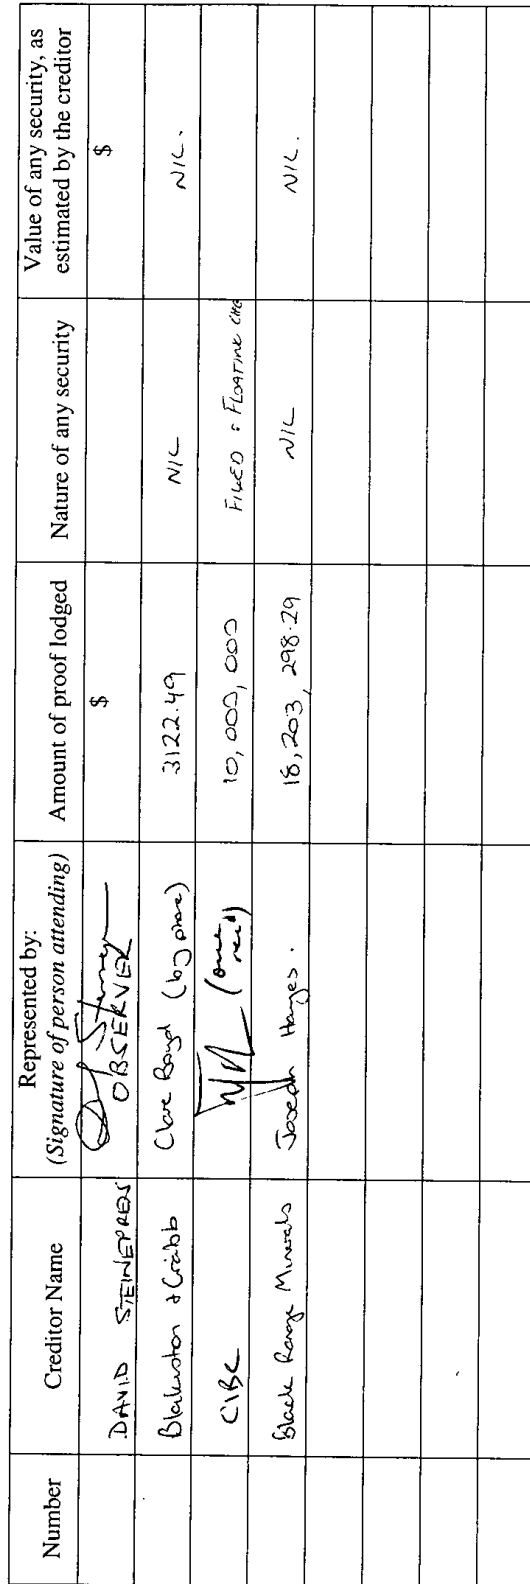 Number
Creditor Name
Represented by:
(Signature of person attending)
Amount of proof lodged
Nature of any security
Value of any security, as
estimated by the creditor
DAVID STEINEPREIS
OBSERVER
$
$
Blakiston & Crabb
Clare Boyd (by phone)
3122.49
NIL
NIL.
CIBC
10,000,000
FIXED & FLOATING CHG
Black Range Minerals
Joseph Hayes.
18,203,298.29
NIL
NIL.